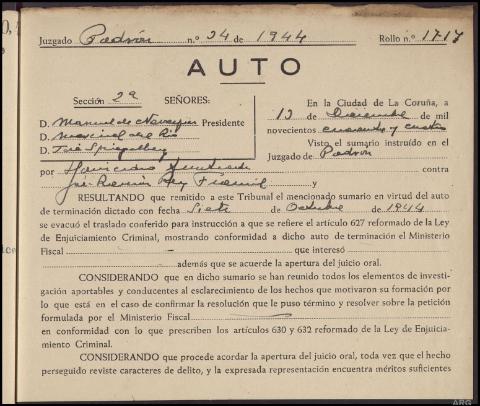 Juzgado Padrón n.º 24 de 1944 Rollo n.º 1717
AUTO
Sección 2ª SEÑORES:
D. Manuel de Presidente
D. Marcial del Río
D. José
En la Ciudad de La Coruña, a
13 de Diciembre de mil
novecientos cuarenta y cuatro
Visto el sumario instruído en el
Juzgado de Padrón
por Homicidio contra
José Ramón Rey y
RESULTANDO que remitido a este Tribunal el mencionado sumario en virtud del auto
de terminación dictado con fecha Siete de Octubre de 1944
se evacuó el traslado conferido para instrucción a que se refiere el artículo 627 reformado de la Ley
de Enjuiciamiento Criminal, mostrando conformidad a dicho auto de terminación el Ministerio
Fiscal — que interesó
además que se acuerde la apertura del juicio oral.
CONSIDERANDO que en dicho sumario se han reunido todos los elementos de investi-
gación aportables y conducentes al esclarecimiento de los hechos que motivaron su formación por
lo que está en el caso de confirmar la resolución que le puso término y resolver sobre la petición
formulada por el Ministerio Fiscal
en conformidad con lo que prescriben los artículos 630 y 632 reformado de la Ley de Enjuicia-
miento Criminal.
CONSIDERANDO que procede acordar la apertura del juicio oral, toda vez que el hecho
perseguido reviste caracteres de delito, y la expresada representación encuentra méritos suficientes
ARG